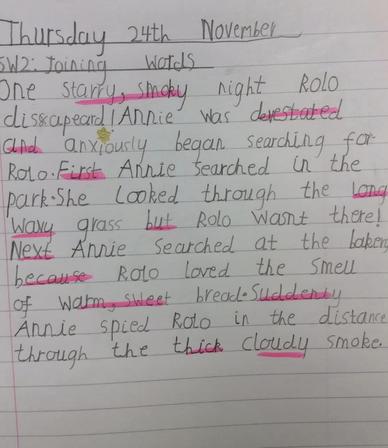 Thursday 24th November
SW2: Joining words
One starry, smoky night Rolo
disscapeard! Annie was devestated
and anxiously began searching for
Rolo. First Annie searched in the
park. She looked through the long
wavy grass but Rolo wasnt there!
Next Annie searched at the bakery
because Rolo loved the smell
of warm, sweet bread. Suddenly
Annie spied Rolo in the distance
through the thick cloudy smoke.